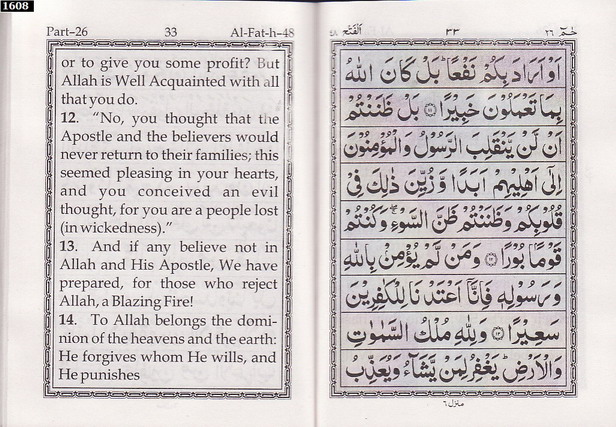 1608
Part-26 33 Al-Fat-h-48
or to give you some profit? But
Allah is Well Acquainted with all
that you do.
12. “No, you thought that the
Apostle and the believers would
never return to their families; this
seemed pleasing in your hearts,
and you conceived an evil
thought, for you are a people lost
(in wickedness).”
13. And if any believe not in
Allah and His Apostle, We have
prepared, for those who reject
Allah, a Blazing Fire!
14. To Allah belongs the domi-
nion of the heavens and the earth:
He forgives whom He wills, and
He punishes
حٰمٓ ٢٦ ٣٣ اَلْفَتْح ٤٨
اَوْ اَرَادَ بِكُمْ نَفْعًا ؕ بَلْ كَانَ اللّٰهُ
بِمَا تَعْمَلُوْنَ خَبِيْرًا ۝۱۱ بَلْ ظَنَنْتُمْ
اَنْ لَّنْ يَّنْقَلِبَ الرَّسُوْلُ وَالْمُؤْمِنُوْنَ
اِلٰٓى اَهْلِيْهِمْ اَبَدًا وَّزُيِّنَ ذٰلِكَ فِيْ
قُلُوْبِكُمْ وَظَنَنْتُمْ ظَنَّ السَّوْءِ ۖ وَكُنْتُمْ
قَوْمًا ۢ بُوْرًا ۝۱۲ وَمَنْ لَّمْ يُؤْمِنْ ۢ بِاللّٰهِ
وَرَسُوْلِهٖ فَاِنَّاۤ اَعْتَدْنَا لِلْكٰفِرِيْنَ
سَعِيْرًا ۝۱۳ وَلِلّٰهِ مُلْكُ السَّمٰوٰتِ
وَالْاَرْضِ ؕ يَغْفِرُ لِمَنْ يَّشَآءُ وَيُعَذِّبُ
منزل ٦